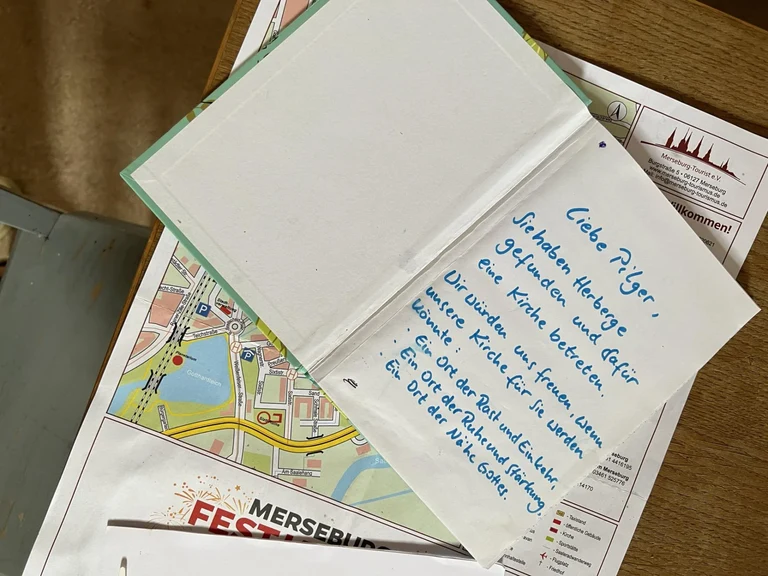 Liebe Pilger,
Sie haben Herberge
gefunden und dafür
eine Kirche betreten.
Wir würden uns freuen, wenn
unsere Kirche für Sie werden
könnte:
· Ein Ort der Rast und Einkehr.
· Ein Ort der Ruhe und Stärkung.
· Ein Ort der Nähe Gottes.
Merseburg-Tourist e.V.
Burgstraße 5 • 06127 Merseburg
www.merseburg-tourismus.de
info@merseburg-tourismus.de
illkommen!
Teichstraße
Gotthardteich
Am Saalehang
MERSEBURG
FEST
- Taxistand
- öffentliche Gebäude
- Kirche
- Sportstätte
- Saaleradwanderweg
- Flugplatz
- Friedhof